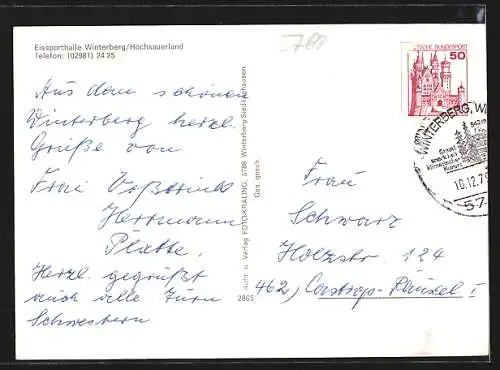 Eissporthalle Winterberg/Hochsauerland
Telefon: (02981) 24 25
5788
Aus dem schönen
Winterberg herzl.
Grüße von
Frau
Herrmann
Platte.
Herzl. gegrüßt
auch alle Turn
Schwestern
Aufn. u. Verlag FOTO-KRALING, 5788 Winterberg-Siedlinghausen
Ges. gesch.
2865
DEUTSCHE BUNDESPOST
50
WINTERBERG, W
heilklimatischer
Kurort
10.12.7
57
Frau
Schwarz
Holzstr. 124
462, Castrop-Rauxel I